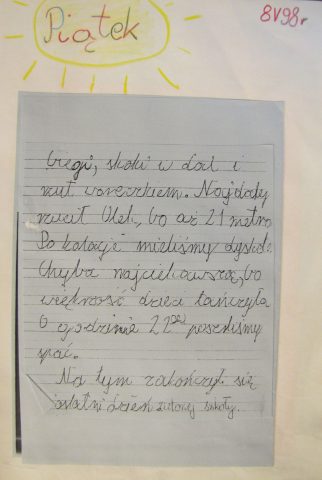 Piątek
8V98r
biegi, skoki w dal i
rzut woreczkiem. Najdalej
rzucił Olek, bo aż 21 metró
Po kolacji mieliśmy dyskote
Chyba najciekawszą, bo
większość dzieci tańczyła
O godzinie 22⁰⁰ poszliśmy
spać.
Na tym zakończył się
ostatni dzień zielonej szkoły.